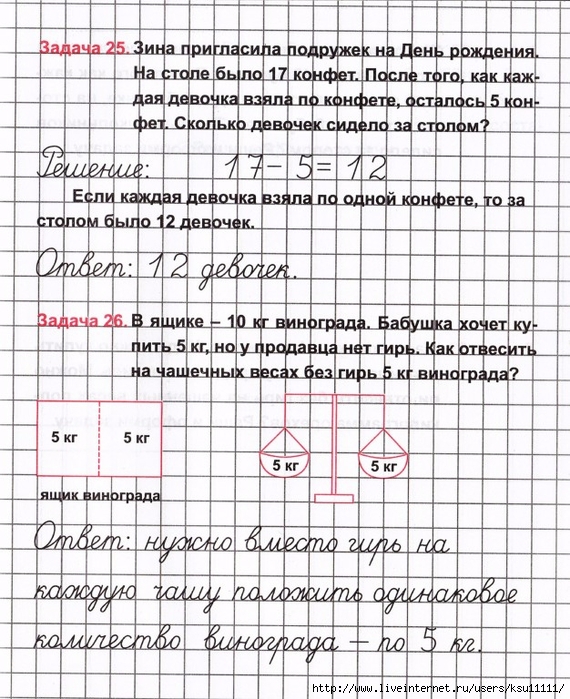 Задача 25. Зина пригласила подружек на День рождения.
На столе было 17 конфет. После того, как каж-
дая девочка взяла по конфете, осталось 5 кон-
фет. Сколько девочек сидело за столом?
Решение: 17 – 5 = 12
Если каждая девочка взяла по одной конфете, то за
столом было 12 девочек.
Ответ: 12 девочек.
Задача 26. В ящике – 10 кг винограда. Бабушка хочет ку-
пить 5 кг, но у продавца нет гирь. Как отвесить
на чашечных весах без гирь 5 кг винограда?
5 кг 5 кг
5 кг 5 кг
ящик винограда
Ответ: нужно вместо гирь на
каждую чашу положить одинаковое
количество винограда – по 5 кг.
http://www.liveinternet.ru/users/ksu11111/